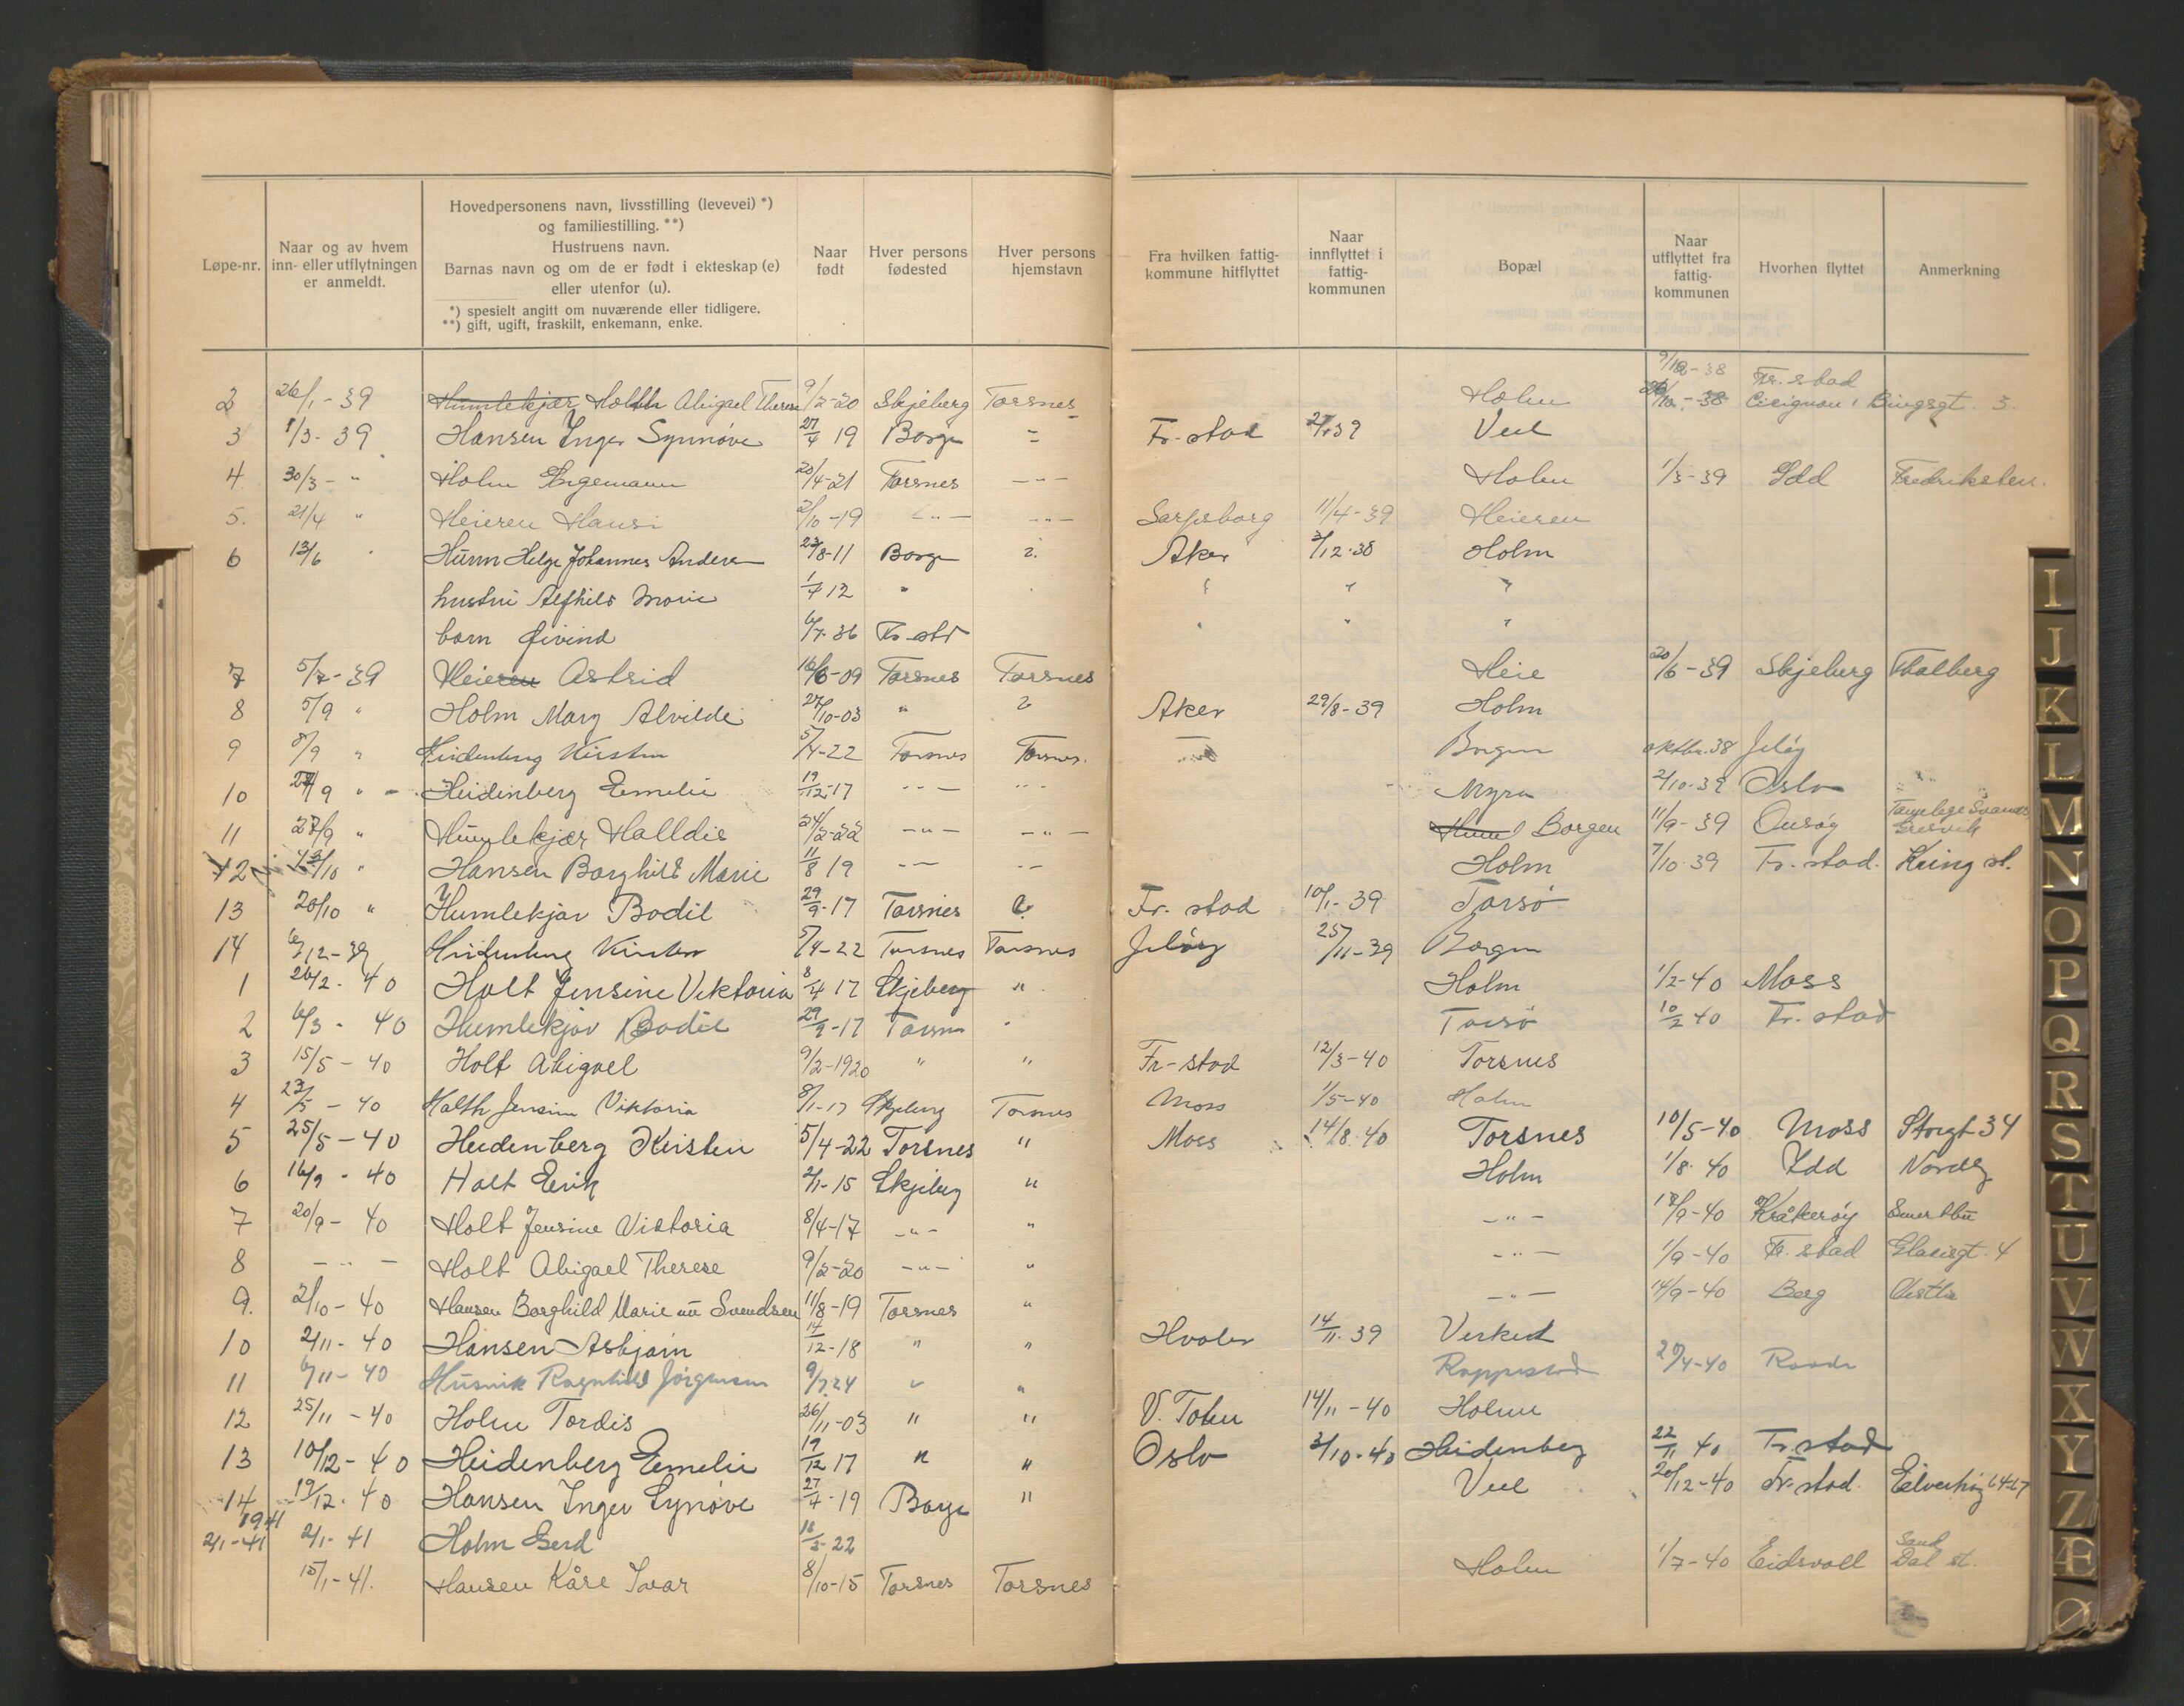 Løpe-nr.
Naar og av hvem inn- eller utflytningen er anmeldt.
Hovedpersonens navn, livsstilling (levevei) *)
og familiestilling. **)
Hustruens navn.
Barnas navn og om de er født i ekteskap (e)
eller utenfor (u).
*) spesielt angitt om nuværende eller tidligere.
**) gift, ugift, fraskilt, enkemann, enke.
Naar født
Hver persons fødested
Hver persons hjemstavn
Fra hvilken fattig-kommune hitflyttet
Naar innflyttet i fattig-kommunen
Bopæl
Naar utflyttet fra fattig-kommunen
Hvorhen flyttet
Anmerkning
2 26/1-39 Humlekjær Holth Abigael Therese 9/2-20 Skjeberg Torsnes Holm 38 Fr. stad Bingsgt. 3
3 1/3-39 Hansen Inger Synnøve 27/4 19 Borge Fr-stad 39 Veel
4 30/3 - " Holm Ingemann 20/4-21 Torsnes -"- Holm 1/3-39 Idd Fredriksten.
5. 21/4 " Heieren Hansi 2/10-19 -"- -"- Sarpsborg 11/4-39 Heieren
6 13/6 " Hunn Helge Johannes Andersen 23/8-11 Borge ? Aker 3/12-38 Holm
hustru Alfhild Marie 1/4 12 " " " "
barn Øivind 6/7-36 Fr-std " " "
7 5/7-39 Heieren Astrid 16/6-09 Torsnes Torsnes Heie 20/6-39 Skjeberg Thalberg
8 5/9 " Holm Mary Alvilde 27/10-03 " ? Aker 29/8-39 Holm
9 8/9 " Heidenberg Kirsten 5/4-22 Torsnes Torsnes. Borgen oktbr. 38 Jeløy
10 28/9 " - Heidenberg Emelie 19/12-17 -"- -"- Myra 2/10-39 Oslo
11 27/9 " Humlekjær Halldis 24/2-22 -"- -"- Hum Borgen 11/9-39 Onsøy Gresvik
12 13/10 " Hansen Borghild Marie 11/8 19 -"- -"- Holm 7/10-39 Fr. stad. Kring st.
13 20/10 " Humlekjær Bodil 29/9-17 Torsnes ? Fr. stad 10/1-39 Torsø
14 6/12-39 Heidenberg Kirsten 5/4-22 Torsnes Torsnes Jeløy 25/11-39 Borgen
1 26/2-40 Holt Jensine Viktoria 8/4 17 Skjeberg " Holm 1/2-40 Moss
2 6/3-40 Humlekjær Bodil 29/9-17 Torsnes " Torsø 10/2 40 Fr. stad
3 15/5-40 Holt Abigael 9/2-1920 " " Fr-stad 12/3-40 Torsnes
4 23/5-40 Holth Jensine Viktoria 8/1-17 Skjeberg Torsnes Moss 1/5-40 Holm
5 25/5-40 Heidenberg Kirsten 5/4-22 Torsnes " Moss 14/8-40 Torsnes 10/5-40 Moss Storgt 34
6 16/9-40 Holt Erik 2/1-15 Skjeberg " Holm 1/8-40 Idd
7 20/9-40 Holt Jensine Victoria 8/4-17 -"- " -"- 18/9-40 Kråkerøy
8 -"- Holt Abigael Therese 9/2-20 -"- " -"- 1/9-40 Fr. stad Glacisgt. 4
9. 2/10-40 Hansen Borghild Marie nu Svendsen 11/8-19 Torsnes " -"- 14/9-40 Berg
10 2/11-40 Hansen Asbjørn 14/12-18 " " Hvaler 14/11-39 Verket
11 6/11-40 Husvik Ragnhild Jørgensen 9/7-24 " " Rappestad 20/4-40 Raade
12 25/11-40 Holm Tordis 26/11-03 " " V. Toten 14/11-40 Holm
13 10/12-40 Heidenberg Emelie 19/12 17 " " Oslo 3/10-40 Heidenberg 22/11 40 Fr. stad
14 19/12-40 Hansen Inger Synøve 27/4-19 Borge " Veel 20/12-40 Fr-stad.
1941
2/1-41 2/1-41 Holm Gerd 16/2-22
15/1-41. Hansen Kåre Ivar 8/10-15 Torsnes Torsnes Holm 1/7-40 Eidsvoll Sand Dal st.
I
J
K
L
M
N
O
P
Q
R
S
T
U
V
W
X
Y
Z
Æ
Ø